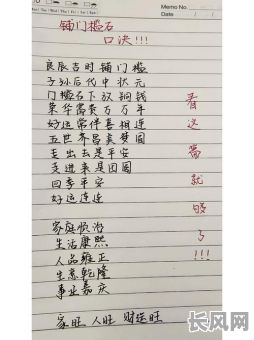 Memo No.
Date / /
铺门槛石
口决!!!
良辰吉时铺门槛
子孙后代中状元
门槛石下放铜钱
荣华富贵万万年
好运常伴喜相连
五世其昌美梦圆
走出去是平安
走进来是团圆
四季平安
好运连连
家庭顺治
生活康熙
人品雍正
生意乾隆
事业嘉庆
家旺 人旺 财运旺
看这篇就够了!!!
长风网